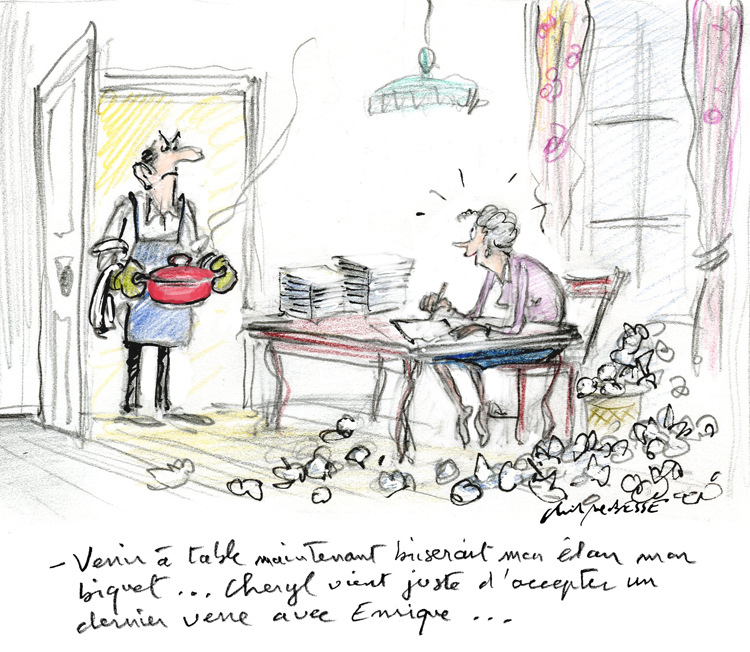 Philippe BESSE
- Venir à table maintenant briserait mon élan mon
biquet ... Cheryl vient juste d'accepter un
dernier verre avec Enrique ...